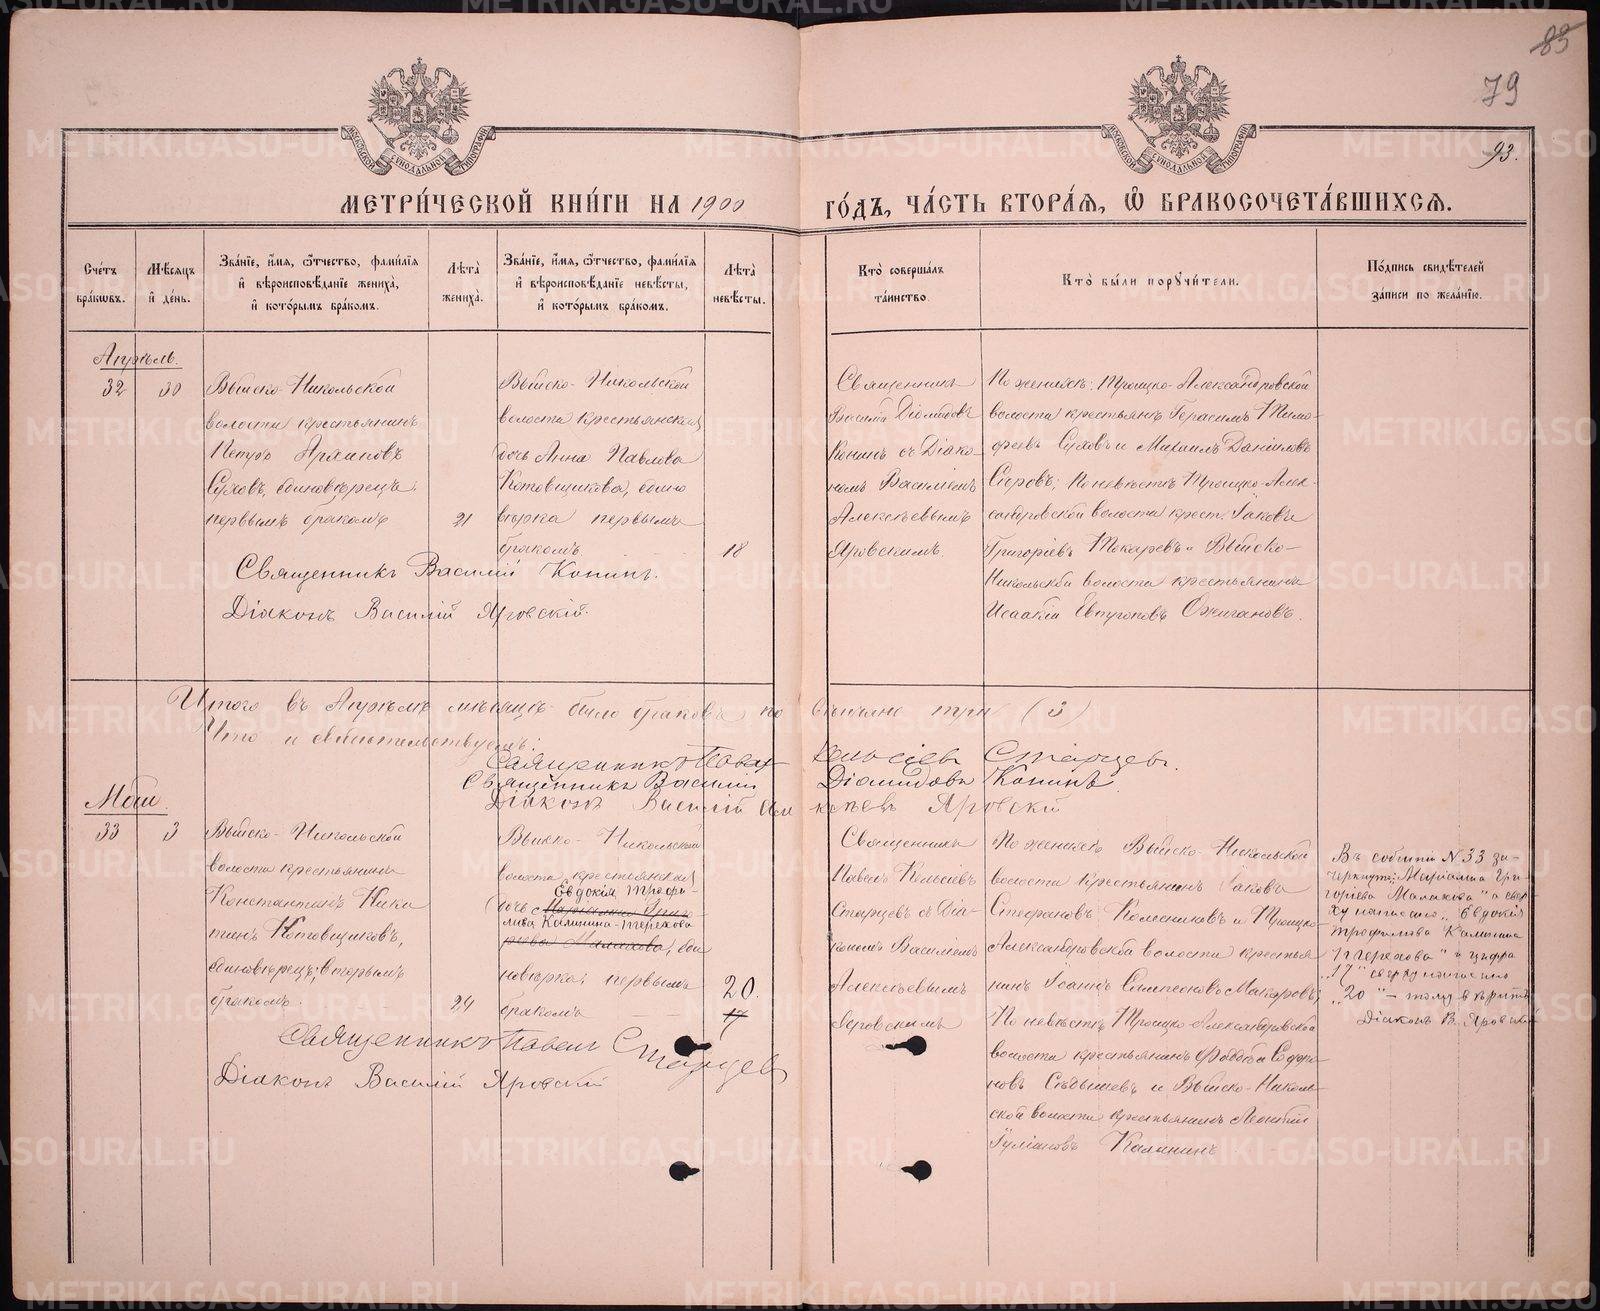 83
79
93.
МОСКОВСКОЙ СѴНОДАЛЬНОЙ ТИПОГРАФІИ
МОСКОВСКОЙ СѴНОДАЛЬНОЙ ТИПОГРАФІИ
МЕТРИ́ЧЕСКОЙ КНИ́ГИ НА 1900 ГО́ДЪ, ЧА́СТЬ ВТОРА́Я, Ѽ БРАКОСОЧЕТА́ВШИХСЯ.
Сче́тъ бра́кѡвъ.
Мѣ́сяцъ и҆ де́нь.
Зва́нїе, и҆́мя, ѻ҆́тчество, фами́лїя и҆ вѣроисповѣ́данїе жениха̀, и҆ кото́рымъ бра́комъ.
Лѣ́та̀ жениха̀.
Зва́нїе, и҆́мя, ѻ҆́тчество, фами́лїя и҆ вѣроисповѣ́данїе невѣ́сты, и҆ кото́рымъ бра́комъ.
Лѣ́та̀ невѣ́сты.
Кто̀ соверша́лъ та́инство
Кто̀ бы́ли порꙋчи́тели.
По́дпись свидѣ́телей за́писи по жела́нїю.
Апрѣль.
32
30
Выйско-Никольской
волости крестьянинъ
Петръ Архиповъ
Суховъ, единовѣрецъ,
первымъ бракомъ
21
Выйско-Никольской
волости крестьянская
дочь Анна Павлова
Котовщикова, едино
вѣрка первымъ
бракомъ.
18
Священникъ
Василій Діомидовъ
Конинъ съ Діако-
номъ Василіемъ
Алексѣевымъ
Яровскимъ.
По женихѣ: Троицко-Александровской
волости крестьяне Герасимъ Тимо-
феевъ Суховъ и Михаилъ Даниловъ
По невѣстѣ Троицко-Алек-
сандровской волости крест. Іаковъ
Григоріевъ Токаревъ и Выйско-
Никольской волости крестьянинъ
Исаакій Евтроповъ Ожигановъ.
Священникъ Василій Конинъ.
Діаконъ Василій Яровскій.
Итого въ Апрѣлѣ мѣсяцѣ было браковъ по вѣнчано три (3)
Что и свидѣтельствуемъ:
Священникъ Павелъ Елисіевъ Старцевъ.
Священникъ Василій Діомидовъ Конинъ.
Діаконъ Василій Алексѣевъ Яровскій
Май.
33
3
Выйско-Никольской
волости крестьянинъ
Константинъ Ники
тинъ Котовщиковъ,
единовѣрецъ, вторымъ
бракомъ.
24
Выйско-Никольской
волости крестьянская
Евдокія Трофи-
дочь Маріанна Григо-
мова Калинина-Терехова
рьева Малахова, еди
новѣрка, первымъ
бракомъ
20.
17
Священникъ
Павелъ Елисіевъ
Старцевъ съ Діа-
кономъ Василіемъ
Алексѣевымъ
Яровскимъ
По женихѣ Выйско-Никольской
волости крестьянинъ Іаковъ
Стефановъ Колесниковъ и Троицко-
Александровской волости крестья
нинъ Іоаннъ Симеоновъ Макаровъ;
По невѣстѣ Троицко-Александровской
волости крестьянинъ
и Выйско-Николь-
ской волости крестьянинъ Леонтій
Іуліановъ Калининъ
Въ событіи №33 за-
черкнуто: „Маріанна Гри-
горіева Малахова" а свер
ху написано „Евдокія
Трофимова Калинина
Терехова" и цифра
„17" сверху написано
„20" — тому вѣрить
Діаконъ В. Яровскій
Священникъ Павелъ Старцевъ
Діаконъ Василій Яровскій
METRIKI.GASO-URAL.RU